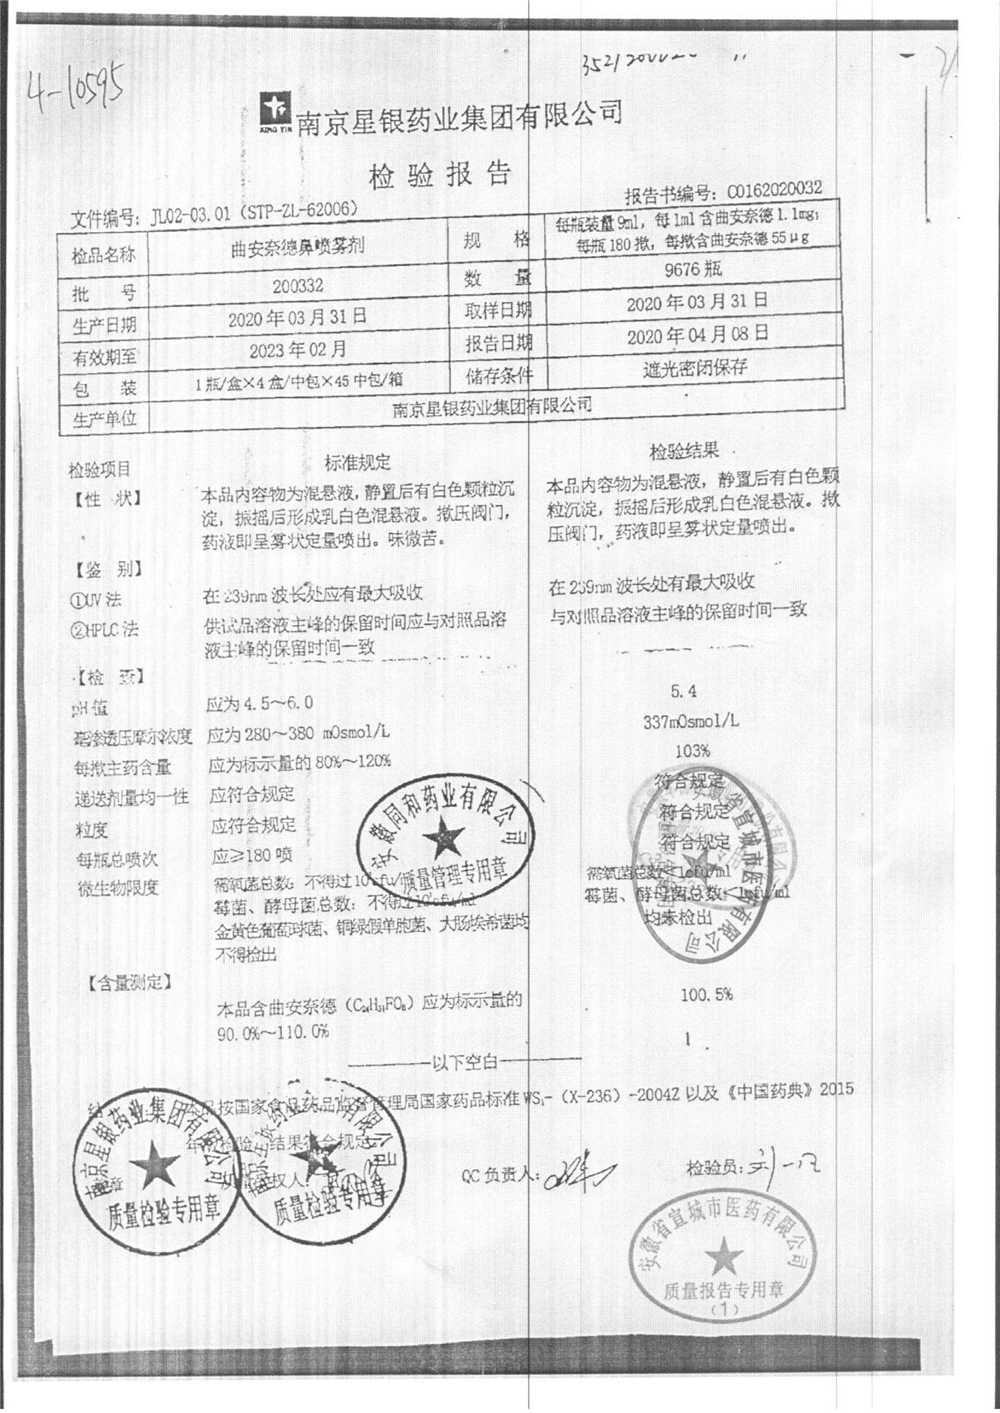 4-10595
XING YIN
南京星银药业集团有限公司
检验报告
文件编号：JL02-03.01（STP-ZL-62006）
报告书编号：C0162020032
检品名称 曲安奈德鼻喷雾剂 规 格 每瓶装量9ml，每1ml含曲安奈德1.1mg；
每瓶180揿，每揿含曲安奈德55μg
批 号 200332 数 量 9676瓶
生产日期 2020年03月31日 取样日期 2020年03月31日
有效期至 2023年02月 报告日期 2020年04月08日
包 装 1瓶/盒×4盒/中包×45中包/箱 储存条件 遮光密闭保存
生产单位 南京星银药业集团有限公司
检验项目 标准规定 检验结果
【性 状】 本品内容物为混悬液，静置后有白色颗粒沉 本品内容物为混悬液，静置后有白色颗
淀，振摇后形成乳白色混悬液。揿压阀门， 粒沉淀，振摇后形成乳白色混悬液。揿
药液即呈雾状定量喷出。味微苦。 压阀门，药液即呈雾状定量喷出。
【鉴 别】
①UV法 在239nm波长处应有最大吸收 在239nm波长处有最大吸收
②HPLC法 供试品溶液主峰的保留时间应与对照品溶 与对照品溶液主峰的保留时间一致
液主峰的保留时间一致
【检 查】
pH值 应为4.5～6.0 5.4
毫渗透压摩尔浓度 应为280～380 mOsmol/L 337mOsmol/L
每揿主药含量 应为标示量的80%～120% 103%
递送剂量均一性 应符合规定 符合规定
粒度 应符合规定 符合规定
每瓶总喷次 应≥180喷 符合规定
微生物限度 需氧菌总数：不得过10 cfu/ 需氧菌总数 1cfu/ml
霉菌、酵母菌总数：不得过10 cfu/ml 霉菌、酵母菌总数 1cfu/ml
金黄色葡萄球菌、铜绿假单胞菌、大肠埃希菌均 均未检出
不得检出
【含量测定】
本品含曲安奈德（C₂₄H₃₁FO₆）应为标示量的 100.5%
90.0%～110.0%
以下空白
品按国家食品药品监督管理局国家药品标准WS₁-（X-236）-2004Z以及《中国药典》2015
年 检验 结果符合规定
权人： QC负责人： 检验员：
安徽同和药业有限公司
质量管理专用章
安徽省宣城市医药有限公司
南京星银药业集团有限公司
质量检验专用章
南京星银药业集团有限公司
质量检验专用章
安徽省宣城市医药有限公司
质量报告专用章
（1）